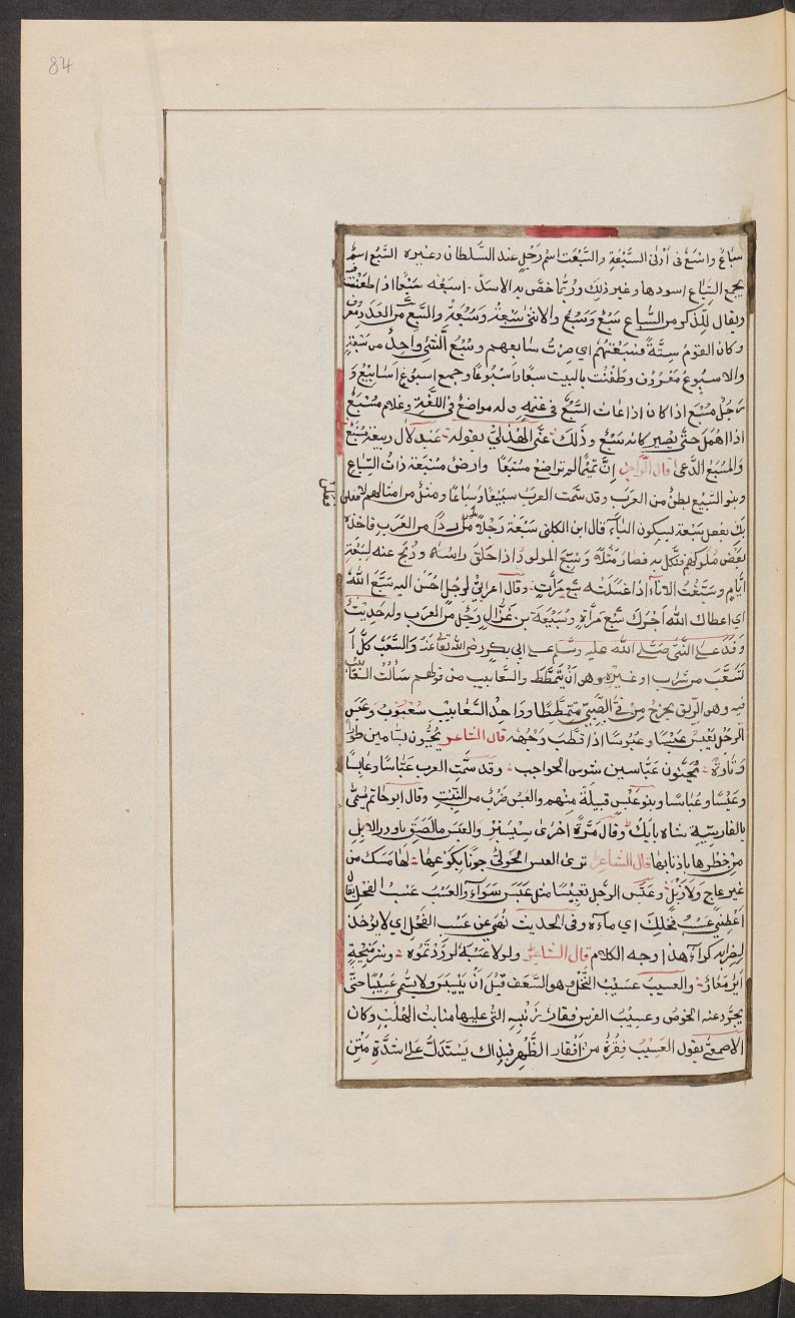 84
سباع واسبع فى ادنى السَّبْعَةِ والسَّبْعَت اسم رَجُلٍ عند السُّلطان وغيره السَّبُع اسم
يجمع السِّباع اسودها وغير ذلك ورُبَّما خصّ به الاسد اسبَعُه سَبْعًا اذا طعَنْتَ
ويقال للذكر من السُّباع سَبُع وَسَبْع والانثى سَبِعَة وَسَبُعَة والسَّبع من العَدَد
وكان القومُ سِتَّةً فسَبَعْتهُم اي صِرْتُ سابعهم وسُبُع الشَّئ واحِدٌ من سَبعَةٍ
والاسبوع مَعْرُوْن وطُفْتُ بالبيت سبعًا واُسْبُوعًا وجمع اسبوع اَسَابيع و
رَجُل مُسْبع اذا كان اذا عاث السَّبُع فى غنمه وله مواضعُ فى اللّغة وغلام مُسْبَعٌ
اذا اهمَلَ حتَّى يَصِير كانه سَبُع وذلك عَنَى الهُذلىّ بقوله عَبدٌ لال ربيعة مُسْبَع
وَالمُسْبَعُ الدَّعى قال الرّاجز اِنَّ تَميمًا لم يُراضَع مُسْبَعًا وارضٌ مُسْبَعَة ذاتُ السِّباعِ
وبنو السَّبيع بطنٌ من العرَب وقد سَمّت العربُ سبيْعًا وسُباعًا ومثلٌ من امثالهم لافعلن
بك بفعل سَبعة بسكون الباَء قال ابن الكلبى سَبْعَة رَجُلًا من العَرَبِ فاخذه
بَعْض مُلوكهم فنكَّل به فصار مُثلة وَسَبَّع المولود اذا حَلَق راسَه وذبح عنه لسَبْعَةِ
ايَّامٍ وسبَّعْتُ الاناَء اذا غسَلتَه سَبْع مَرَّاتٍ وقال اعرابىّ لرجلٍ احْسَنَ اليه سَبَّع اللهُ
اى اعطاك الله اَجرَك سَبْعَ مرَّاةٍ وسُبَيْعَة بن غزال رَجُل من العرَب وله حَدِيْثٌ
وَفَدَ على النَّبىّ صَلَّى الله عليه وسَلَّم على ابى بكر رضى الله تعالى عنه والسَّعْبُ كلَّ
تَسَعَّبَ من شراب او غيرِه وهو اَنْ يَتَمطَّط والسَّعابيب من قولهم سَالَت السَّعابيب
فيه وهو الرّيق يخرج مِن فى الصَّبِىّ متمطِّطًا وواحِدُ السَّعابيب سُعْبُوبٌ وعَبَس
الرجُل يَعْبِسُ عَبْسًا وعُبوسًا اذا قطب وَجْهَه قال الشاعر يُحيُّون بَسّامين طورًا
وَتَارةً يُحيَّونَ عَبَّاسين شوسِ الحواجب وقد سمّت العرب عَبَّاسًا وعابِسًا
وعَبْسًا وعُبَاسًا وبنو عَبْسٍ قبيلة منهم والعَبس ضربٌ من النَّبْت وقال ابو حاتم يُسَمَّى
بالفارسِيّة شاه بابَك وقال مَرَّةً اخرى سِيْسَنْبَر والعَبَس ما لَصَق باَوبر الابل
من خَطرِها باَذنابها قال الشاعر ترى العبس الحَولىّ جونًا بكوعِها لها مَسَك من
غير عاجٍ ولا ذَبْل وعَبَّس الرجل تعْبِيسًا مثل عَبَس سَوَآء والعَسْبُ عَسْبُ الفَحل يُقال
اعْطِنى عَسْبَ فحلِك اى ماءَه وفى الحديث نُهِىَ عن عَسْبِ الفَحْلِ اى لا يؤخذ
لِضِرابه كرآءٌ هذا وجه الكلام قال الشاعر ولولا عَسْبُه لرَدَدْتمُوه وشرّ مَنيحةٍ
اَيرٌ مُعَارٌ والعسيب عَسيْبُ النَّخل وهو السَّعَف قَبْلَ اَنْ يَيْبس ولا يُسَمَّى عَسيْبًا حتّى
يجرَّد عنه الخوصُ وعسيبُ الفرس فقارُ ذنَبِهِ التى عليها منابتُ الهُلب وكان
الاصمعىّ يقول العَسيْبُ فِقْرةٌ من اَفْقار الظَّهر فبذاك يَستَدلُّ على شدَّةِ مَتْن